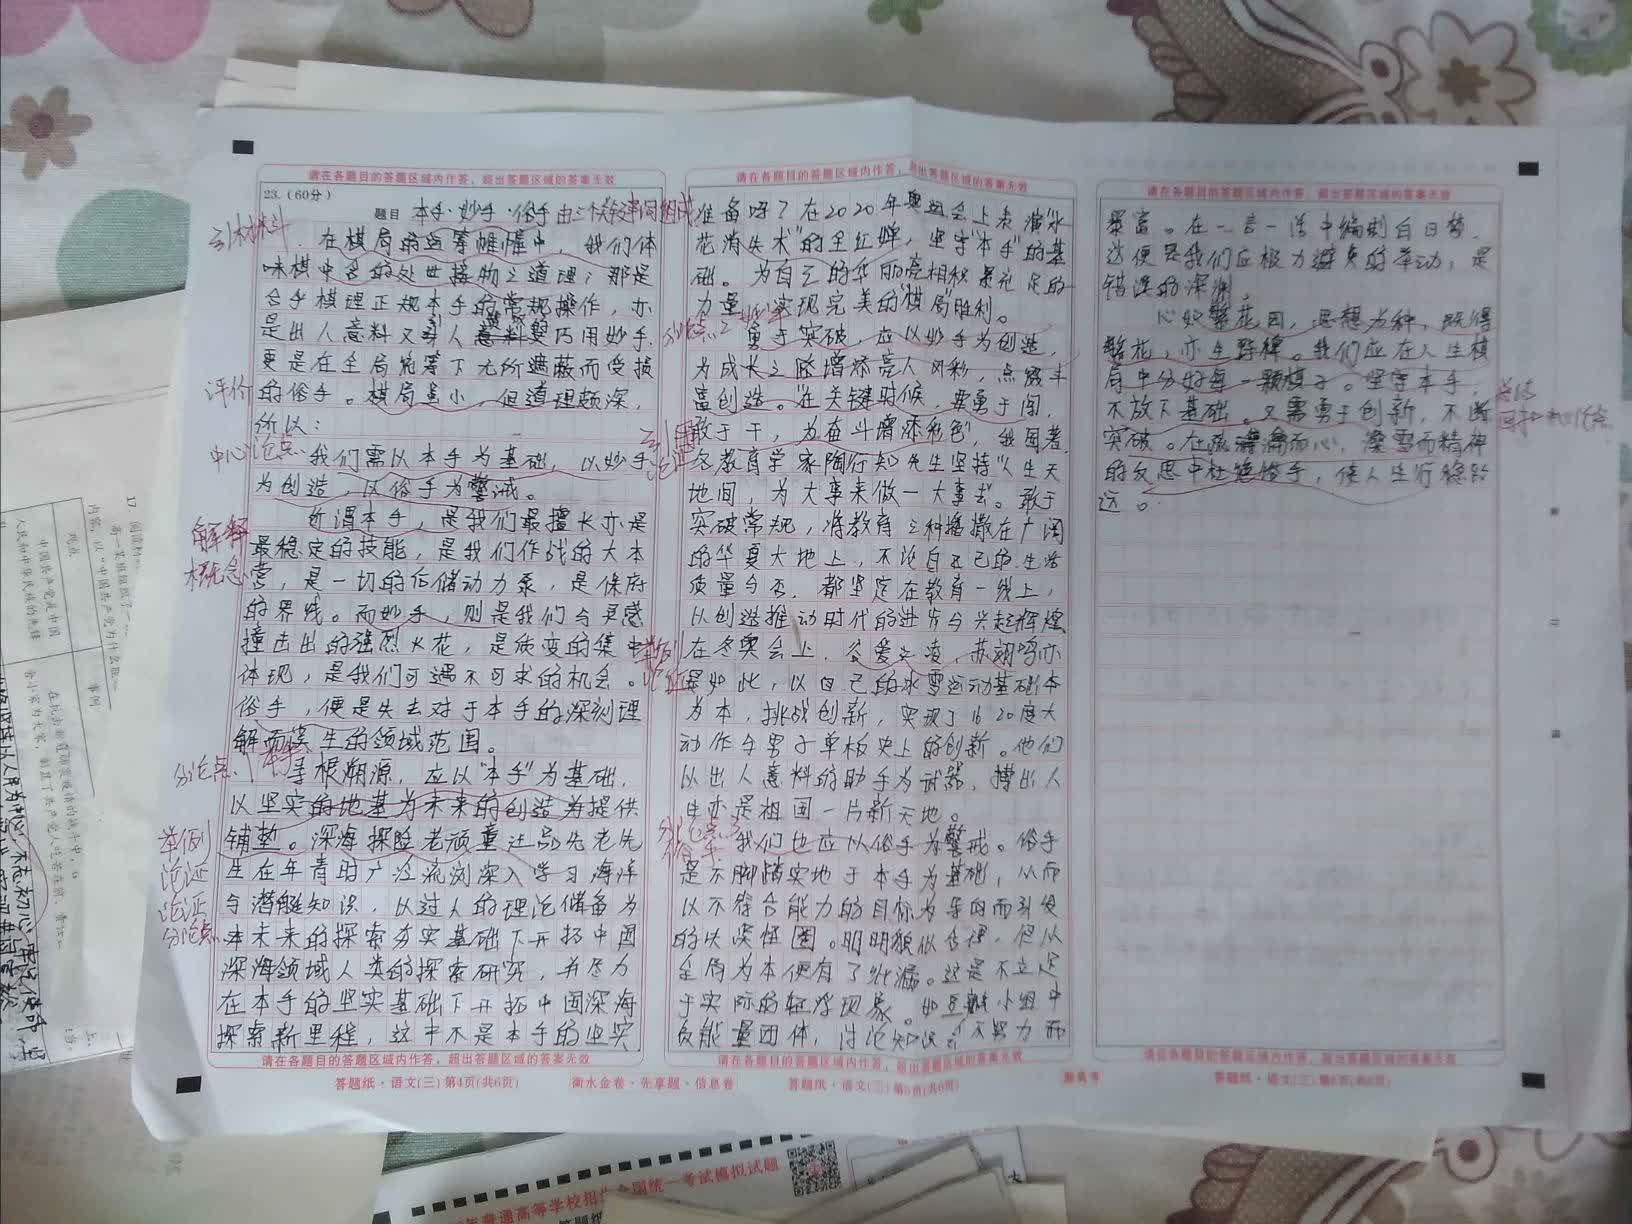 请在各题目的答题区域内作答，超出答题区域的答案无效
23.（60分）
题目 本手·妙手·俗手 由三个关键词组成
引材料
在棋局的运筹帷幄中，我们体
味棋中含的处世接物之道理；那是
合乎棋理正规本手的常规操作，亦
是出人意料又引人 巧用妙手，
更是在全局统筹下无所遮蔽而受损
评价
的俗手。棋局虽小，但道理颇深，
所以：
中心论点
我们需以本手为基础，以妙手
为创造，以俗手为警诫。
解释
概念
所谓本手，是我们最擅长亦是
最稳定的技能，是我们作战的大本
营，是一切的存储动力泵，是保底
的界线。而妙手，则是我们与灵感
撞击出的强烈火花，是质变的集中
体现，是我们可遇不可求的机会。
俗手，便是失去对于本手的深刻理
解而 生的领域范围。
分论点1 本手
寻根溯源，应以“本手”为基础，
以坚实的地基为未来的创造并提供
举例
论证
论证
分论点
铺垫。深海探险老顽童汪品先老先
生在年青时广泛流浏深入学习海洋
与潜艇知识，以过人的理论储备为
本未来的探索夯实基础下开拓中国
深海领域人类的探索研究，并尽力
在本手的坚实基础下开拓中国深海
探索新里程，这中不是本手的坚实
请在各题目的答题区域内作答，超出答题区域的答案无效
答题纸·语文(三) 第4页(共6页)
衡水金卷·先享题·信息卷
请在各题目的答题区域内作答，超出答题区域的答案无效
准备吗？在2020年奥运会上表演“水
花消失术”的全红婵，坚守“本手”的基
础。为自己的华丽亮相积累充足的
力量，实现完美的“棋局”胜利。
分论点2 妙手
勇于突破，应以妙手为创造，
为成长之路增添亮人风彩，点缀丰
富创造。“在关键时候，要勇于闯，
敢于干，为奋斗增添彩色”，我国著
引用
论证
名教育学家陶行知先生坚持“人生天
地间，为大事来做一大事去”。敢于
突破常规，将教育之种播撒在广阔
的华夏大地上，不论自己的生活
质量与否，都坚定在教育一线上，
以创造推动时代的进步与兴起辉煌
举例
论证
在冬奥会上，谷爱凌、苏翊鸣亦
是如此，以自己的冰雪运动基础本
为本，挑战创新，实现了1620度大
动作与男子单板史上的创新。他们
以出人意料的助手为武器，搏出人
生亦是祖国一片新天地。
分论点3
俗手
我们也应以俗手为警戒。俗手
是不脚踏实地于本手为基础，从而
以不符合能力的目标为导向而引发
的失误怪圈。明明貌似合理，但从
全局为本便有了纰漏。这是不立足
于实际的轻浮现象。如豆瓣小组中
负能量团体，讨论如何 不努力而
请在各题目的答题区域内作答，超出答题区域的答案无效
答题纸·语文(三) 第5页(共6页)
请在各题目的答题区域内作答，超出答题区域的答案无效
暴富。在一言一语中编制白日梦，
这便是我们应极力避免的举动，是
错误的深渊。
心如繁花园，思想为种，既得
繁花，亦生野稗。我们应在人生棋
局中分好每一颗棋子。坚守本手，
不放下基础。又需勇于创新，不断
总结
突破。在疏瀹而心，澡雪而精神
的反思中杜绝俗手，使人生行稳致
远。
请在各题目的答题区域内作答，超出答题区域的答案无效
答题纸·语文(三) 第6页(共6页)